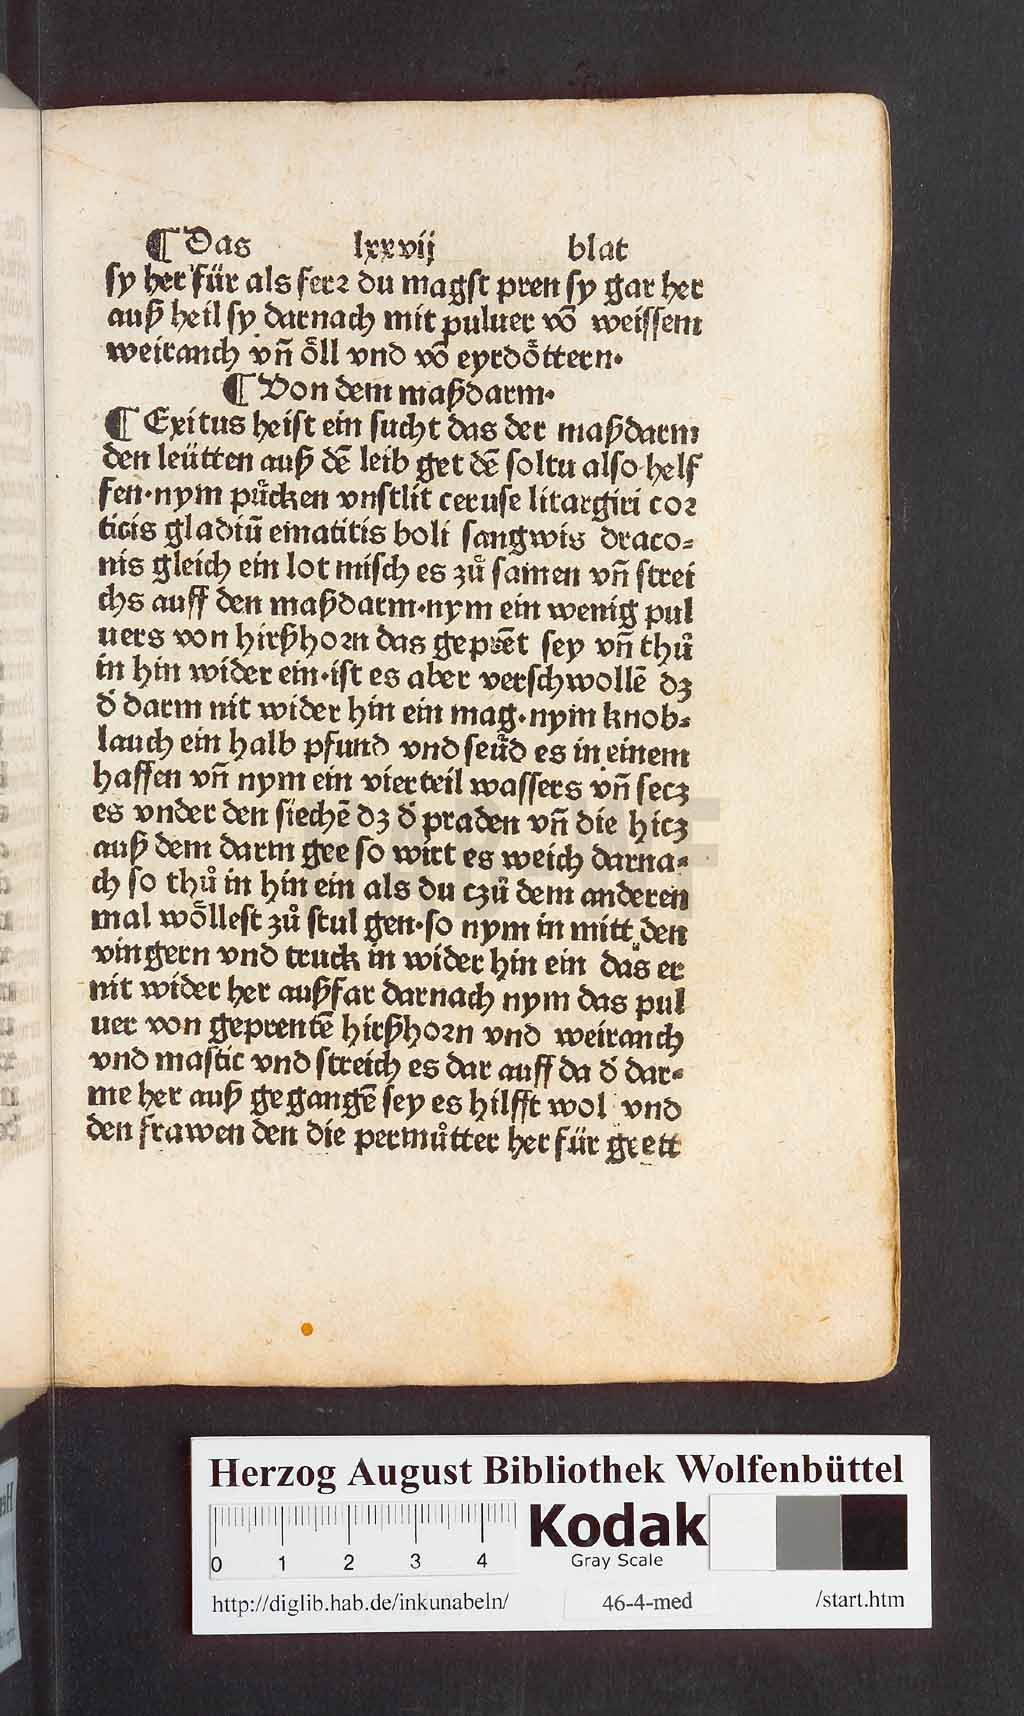 ¶ Das lxxvij blat
sy her für als ferꝛ du magst pren sy gar her
auß heil sy darnach mit puluer vō weissem
weirauch vñ oͤll vnd vō eyrdoͤttern·
¶ Von dem maßdarm·
¶ Exitus heist ein sucht das der maßdarm
den leütten auß dē leib get dē soltu also helf
fen·nym puͤcken vnstlit ceruse litargiri coꝛ
ticis gladiū ematitis boli sangwis draco⸗
nis gleich ein lot misch es zuͦ samen vñ strei
chs auff den maßdarm·nym ein wenig pul
uers von hirßhoꝛn das geprēt sey vñ thuͦ
in hin wider ein·ist es aber verschwollē dz
d̕ darm nit wider hin ein mag·nym knob⸗
lauch ein halb pfund vnd seuͤd es in einem
haffen vñ nym ein vierteil wassers vñ secz
es vnder den siechē dz d̕ praden vñ die hicz
auß dem darm gee so wirt es weich darna⸗
ch so thuͦ in hin ein als du czuͦ dem anderen
mal woͤllest zuͦ stul gen·so nym in mitt den
vingern vnd truck in wider hin ein das er
nit wider her außfar darnach nym das pul
uer von geprentē hirßhoꝛn vnd weirauch
vnd mastic vnd streich es dar auff da d̕ dar⸗
me her auß gegangē sey es hilfft wol vnd
den frawen den die permuͦtter her für geett
Herzog August Bibliothek Wolfenbüttel
0 1 2 3 4
Kodak
Gray Scale
http://diglib.hab.de/inkunabeln/ 46-4-med /start.htm